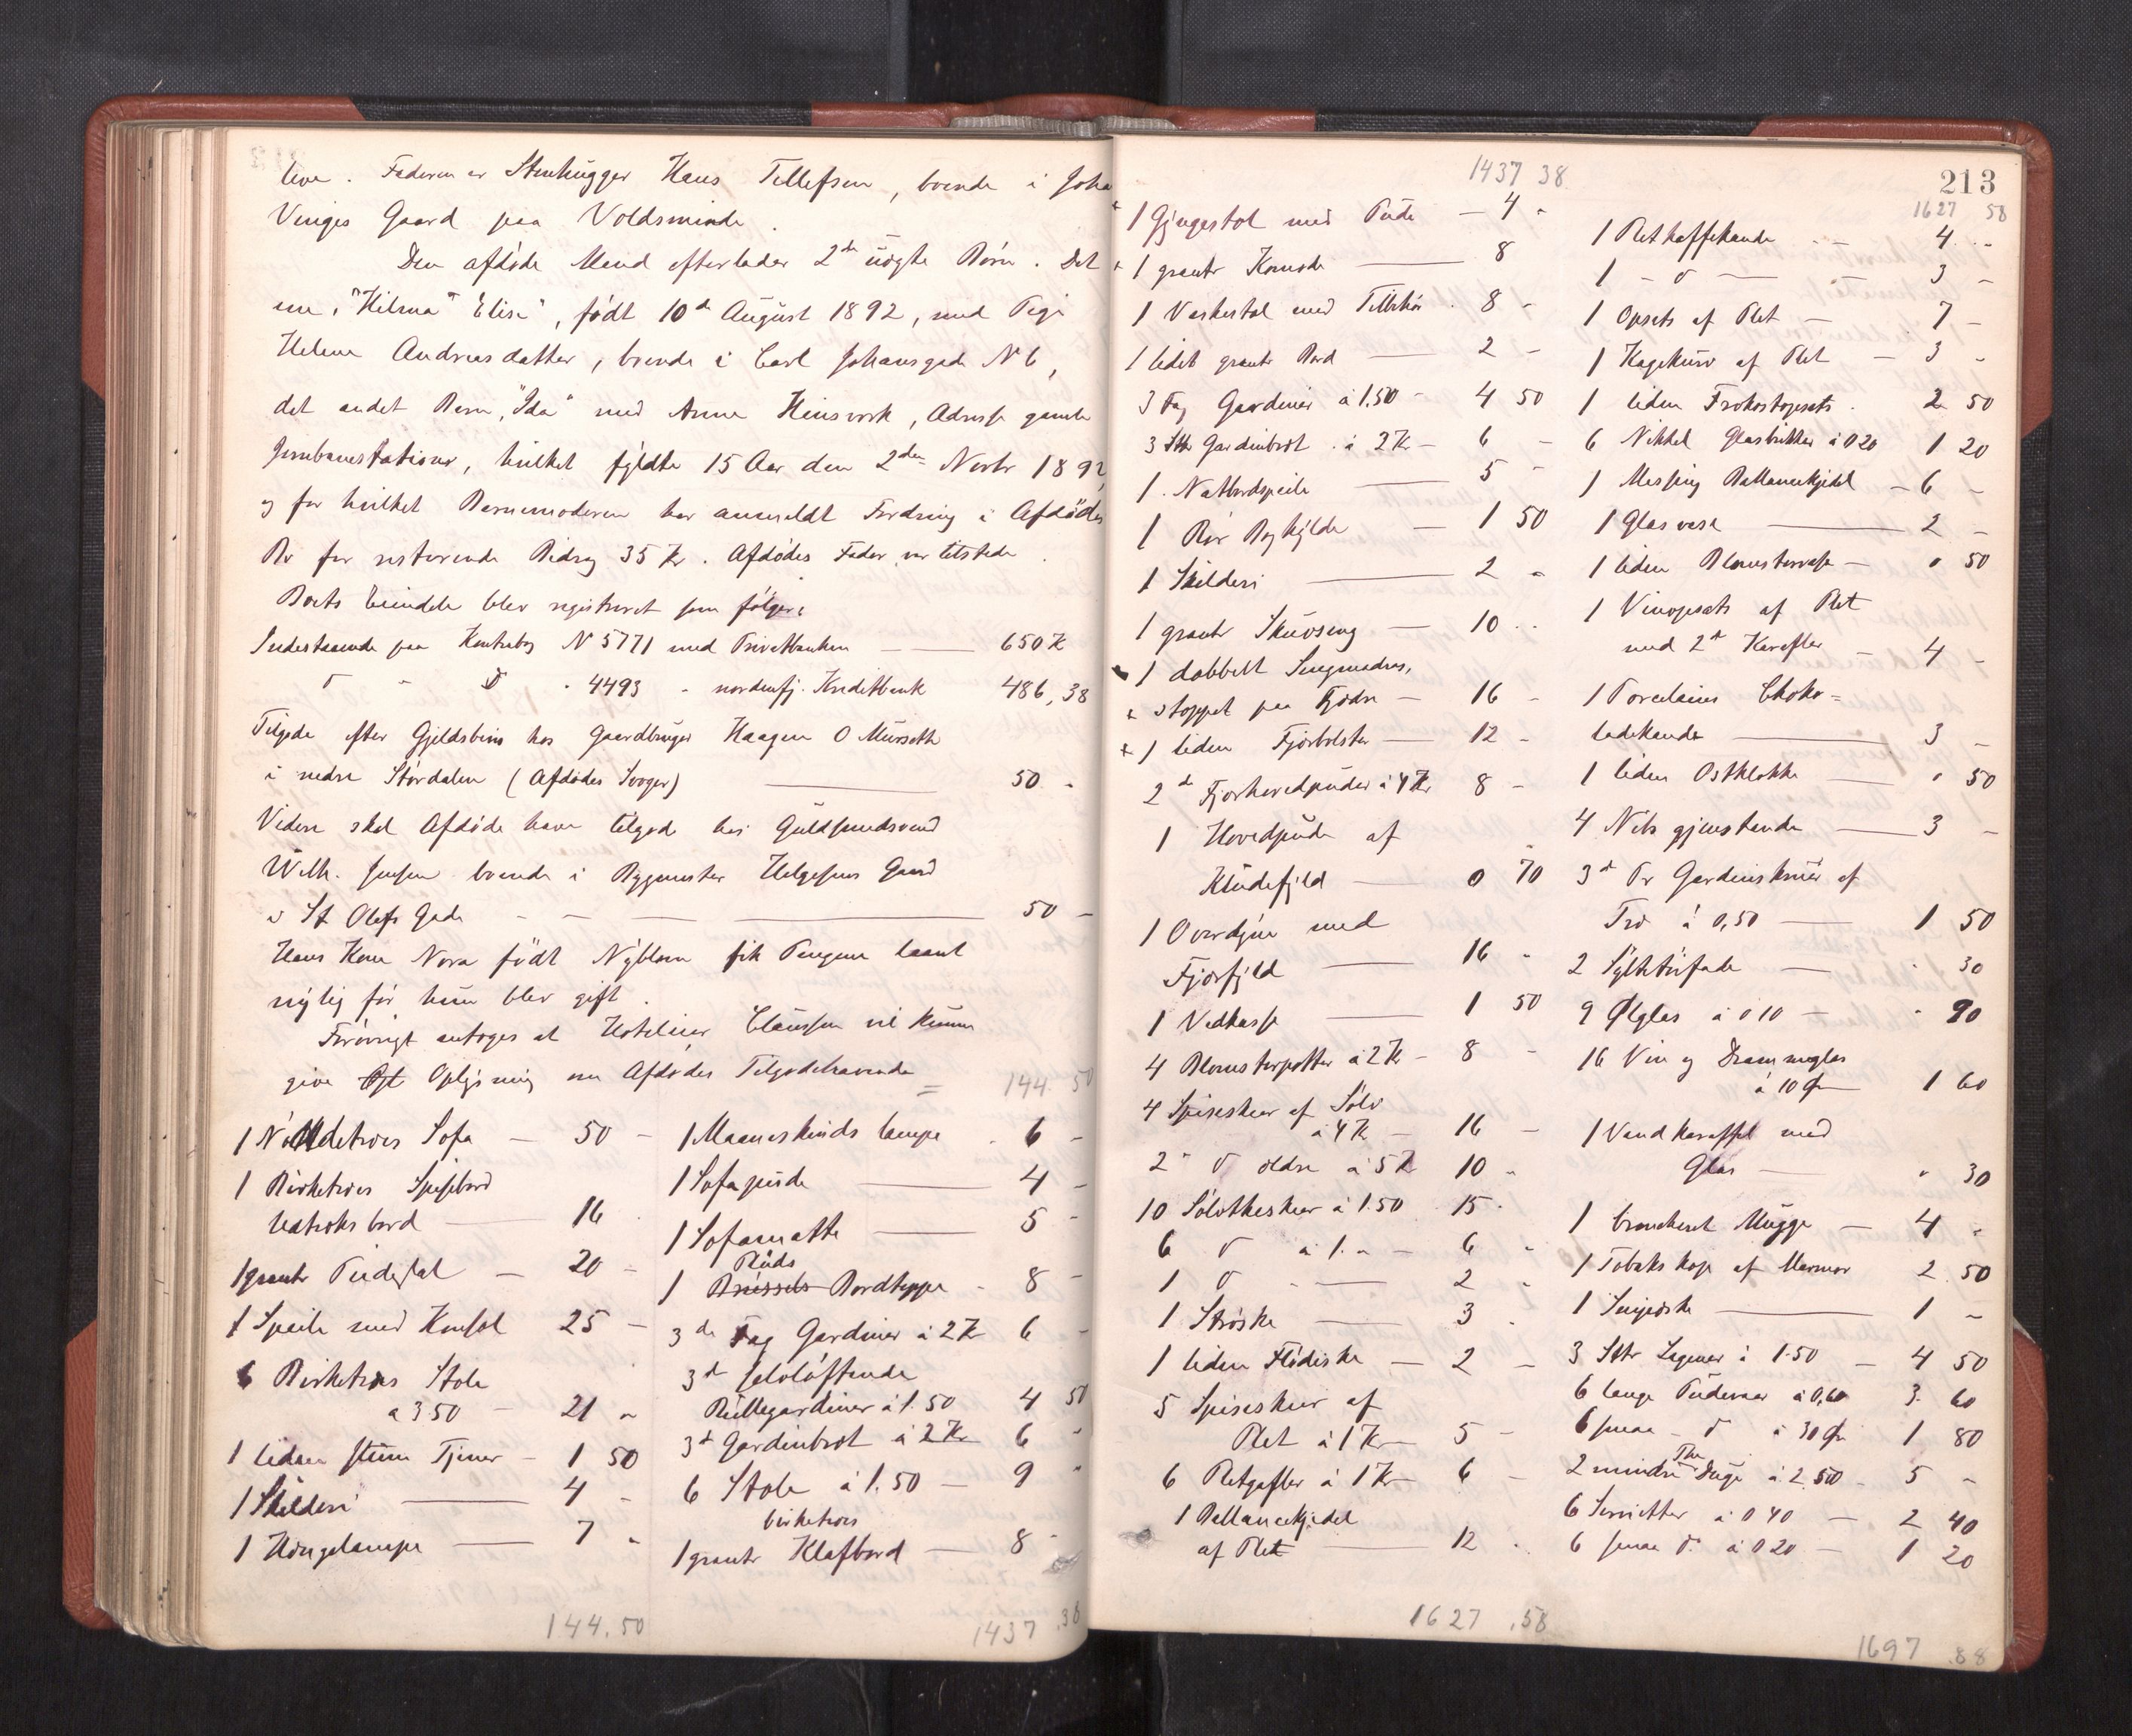 leve. Faderen er Stenhugger Hans Tellefsen, boende i Joha
Vinges Gaard paa Voldsminde.
Den afdøde Mand efterlader 2de uægte Børn. Det
ene, "Hilma Elise", født 10de August 1892, med Pige
Helene Andreasdatter, boende i Carl Johansgade N 6,
det andet Barn, "Ida" med Anne Hinsverk, Adresse gamle
Jernbanestation, hvilket fyldte 15 Aar den 2den Novbr 1892,
og for hvilket Barnemoderen har anmeldt Fordring i Afdødes
Bo for resterende Bidrag 35 Kr. Afdødes Fader var tilstede.
Boets Eiendele blev registreret som følger:
Indestaaende paa Kontrabog N 5771 med Privatbanken — 650 K
" - " - 4493 - nordenfj. Kreditbank 486,38
Tilgode efter Gjeldsbevis hos Gaardbruger Haagen O Murseth
i nedre Stördalen (Afdødes Svoger) — 50 -
Videre skal Afdøde have tilgode hos Guldsmedsvend
Wilh. Jensen boende i Bygmester Helgesens Gaard
i St Olafs Gade - — — 50 -
Hans Kone Nora født Nyblom fik Pengene laant
nylig før hun blev gift.
Forøvrigt antoges at Hotelier Claussen vil kunne
give Opl Oplysning om Afdødes Tilgodehavende = 144.50
1 Nöddetræes Sofa — 50 -
1 Birketræes Spisebord
Uatræks bord — 16
1 graat Piedestal — 20 -
1 Speile med Konsol 25 -
6 Birketræes Stole
a 3 50 - 21 -
1 liden stum Tjener - 1 50
1 Skilderi — 4 -
1 Hængelampe — 7 -
144.50
1 Maaneskinds lampe - 6 -
1 Sofapude — 4 -
1 Sofamatte — 5 -
Plüds
1 Brüssels Bordteppe - 8 -
3de Fag Gardiner à 2 Kr 6 -
3de selvløftende
Rullegardiner à 1.50 4 50
3de Gardinbret à 2 Kr 6 -
6 Stole à 1.50 — 9 -
birketræes
1 graat Klafbord — 8 -
1437.38
1437 38
1 Gjyngestol med Pude — 4 -
1 graat Komode — 8
1 Vaskestol med Tilbehør - 8 -
1 lidet graat Bord — 2 -
3 Fag Gardiner à 1.50 - 4 50
3 Stk Gardinbret à 2 Kr - 6 -
1 Natbordspeile — 5 -
1 Rør Boghylde — 1 50
1 Skilderi — 2 -
1 graat Skuvseng — 10 -
1 dobbelt Sengmadras,
stoppet paa Fjædre — 16 -
1 liden Fjørbolster — 12 -
2de Fjørhovedpuder à 4 Kr 8 -
1 Hovedpude af
Kludefyld — 0 70
1 Overdyne med
Fjørfyld — 16 -
1 Vedkasse — 1 50
4 Blomsterpotter à 2 Kr - 8 -
4 Spiseskeer af Sølv
à 4 K — 16 -
2 " ældre à 5 K 10 -
10 Sølvtheskeer à 1.50 15 -
6 " à 1. - — 6 -
1 " - — 2 -
1 Strøske — 3 -
1 liden Flødeske — 2 -
5 Spiseskeer af
Plet à 1 Kr — 5 -
6 Pletgafler à 1 Kr - 6 -
1 Ballancekjedel
af Plet — 12 -
1627.58
213
1627 58
1 Pletkaffekande - — 4 -
1 - " — 3 -
1 Opsats af Plet — 7 -
1 Kagekurv af Plet — 3 -
1 liden Frokostopsats - 2 50
6 Nikkel Glasbrikker à 0 20 1 20
1 Messing Ballancekjedel - 6 -
1 Glas vase — 2 -
1 liden Blomstervase — " 50
1 Vinopsats af Plet
med 2de Karafler — 4 -
1 Porcelains Choko=
ladekande — 3 -
1 liden Ostklokke — " 50
4 Nips gjenstande — 3 -
3de Pr Gardinsknær af
Træ à 0,50 — 1 50
2 Syltetøifade — " 30
9 Ølglas à 0 10 — " 90
16 Vin og Drammeglas
à 10 Øre 1 60
1 Vandkaraffel med
Glas — " 30
1 broncheret Mugge — 4 -
1 Tobaks kop af Marmor 2.50
1 — 1 -
3 Stkr Lagener à 1.50 — 4 50
6 lange Pudevar à 0,60 3. 60
6 smaa - " à 30 Øre 1 80
2 mindre The Duge à 2.50 - 5 -
6 Servietter à 0 40 — 2 40
6 smaa " à 0 20 — 1 20
1697.88